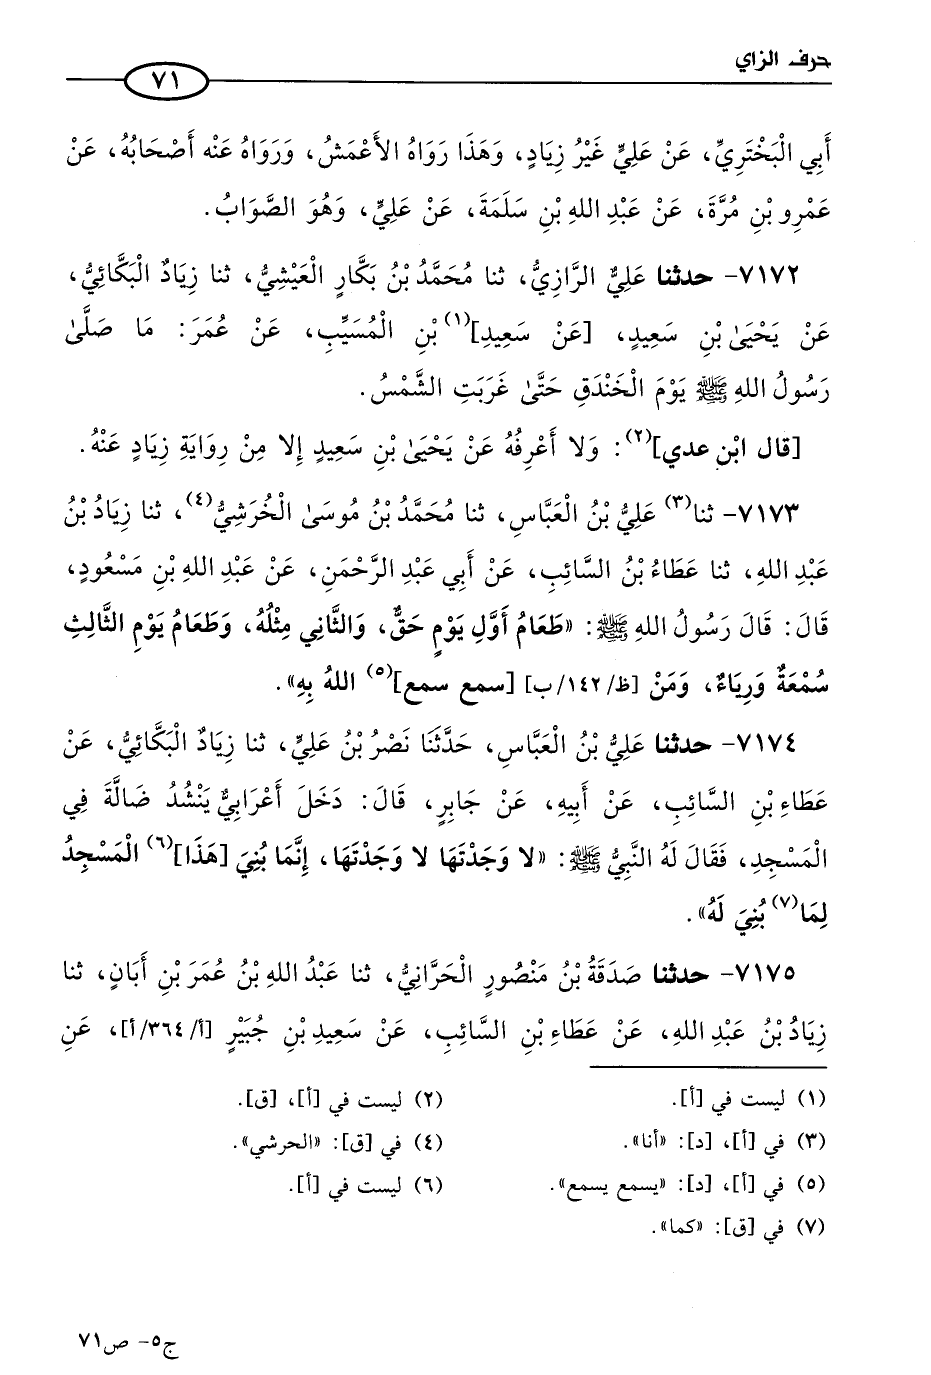 حرف الزاي
٧١
أَبِي الْبَخْتَرِيِّ، عَنْ عَلِيٍّ غَيْرُ زِيَادٍ، وَهَذَا رَوَاهُ الأَعْمَشُ، وَرَوَاهُ عَنْه أَصْحَابُهُ، عَنْ
عَمْرِو بْنِ مُرَّةَ، عَنْ عَبْدِ اللهِ بْنِ سَلَمَةَ، عَنْ عَلِيٍّ، وَهُوَ الصَّوَابُ.
٧١٧٢- حدثنا عَلِيٌّ الرَّازِيُّ، ثنا مُحَمَّدُ بْنُ بَكَّارٍ الْعَيْشِيُّ، ثنا زِيَادٌ الْبَكَّائِيُّ،
عَنْ يَحْيَىٰ بْنِ سَعِيدٍ، [عَنْ سَعِيدِ](١) بْنِ الْمُسَيِّبِ، عَنْ عُمَرَ: مَا صَلَّىٰ
رَسُولُ اللهِ ﷺ يَوْمَ الْخَنْدَقِ حَتَّىٰ غَرَبَتِ الشَّمْسُ.
[قال ابْن عدي](٢): وَلا أَعْرِفُهُ عَنْ يَحْيَىٰ بْنِ سَعِيدٍ إِلا مِنْ رِوَايَةِ زِيَادٍ عَنْهُ.
٧١٧٣- ثنا(٣) عَلِيُّ بْنُ الْعَبَّاسِ، ثنا مُحَمَّدُ بْنُ مُوسَىٰ الْخُرَشِيُّ(٤)، ثنا زِيَادُ بْنُ
عَبْدِ اللهِ، ثنا عَطَاءُ بْنُ السَّائِبِ، عَنْ أَبِي عَبْدِ الرَّحْمَنِ، عَنْ عَبْدِ اللهِ بْنِ مَسْعُودٍ،
قَالَ: قَالَ رَسُولُ اللهِ ﷺ: «طَعَامُ أَوَّلِ يَوْمٍ حَقٌّ، وَالثَّانِي مِثْلُهُ، وَطَعَامُ يَوْمِ الثَّالِثِ
سُمْعَةٌ وَرِيَاءٌ، وَمَنْ [ظ/١٤٢/ب] [سمع سمع](٥) اللهُ بِهِ».
٧١٧٤- حدثنا عَلِيُّ بْنُ الْعَبَّاسِ، حَدَّثَنَا نَصْرُ بْنُ عَلِيٍّ، ثنا زِيَادٌ الْبَكَّائِيُّ، عَنْ
عَطَاءِ بْنِ السَّائِبِ، عَنْ أَبِيهِ، عَنْ جَابِرٍ، قَالَ: دَخَلَ أَعْرَابِيٌّ يَنْشُدُ ضَالَّةً فِي
الْمَسْجِدِ، فَقَالَ لَهُ النَّبِيُّ ﷺ: «لا وَجَدْتَهَا لا وَجَدْتَهَا، إِنَّمَا بُنِيَ [هَذَا](٦) الْمَسْجِدُ
لِمَا(٧) بُنِيَ لَهُ».
٧١٧٥- حدثنا صَدَقَةُ بْنُ مَنْصُورٍ الْحَرَّانِيُّ، ثنا عَبْدُ اللهِ بْنُ عُمَرَ بْنِ أَبَانٍ، ثنا
زِيَادُ بْنُ عَبْدِ اللهِ، عَنْ عَطَاءِ بْنِ السَّائِبِ، عَنْ سَعِيدِ بْنِ جُبَيْرٍ [أ/٣٦٤/أ]، عَنِ
(١) ليست في [أ].
(٢) ليست في [أ]، [ق].
(٣) في [أ]، [د]: «أنا».
(٤) في [ق]: «الحرشي».
(٥) في [أ]، [د]: «يسمع يسمع».
(٦) ليست في [أ].
(٧) في [ق]: «كما».
ج٥- ص٧١